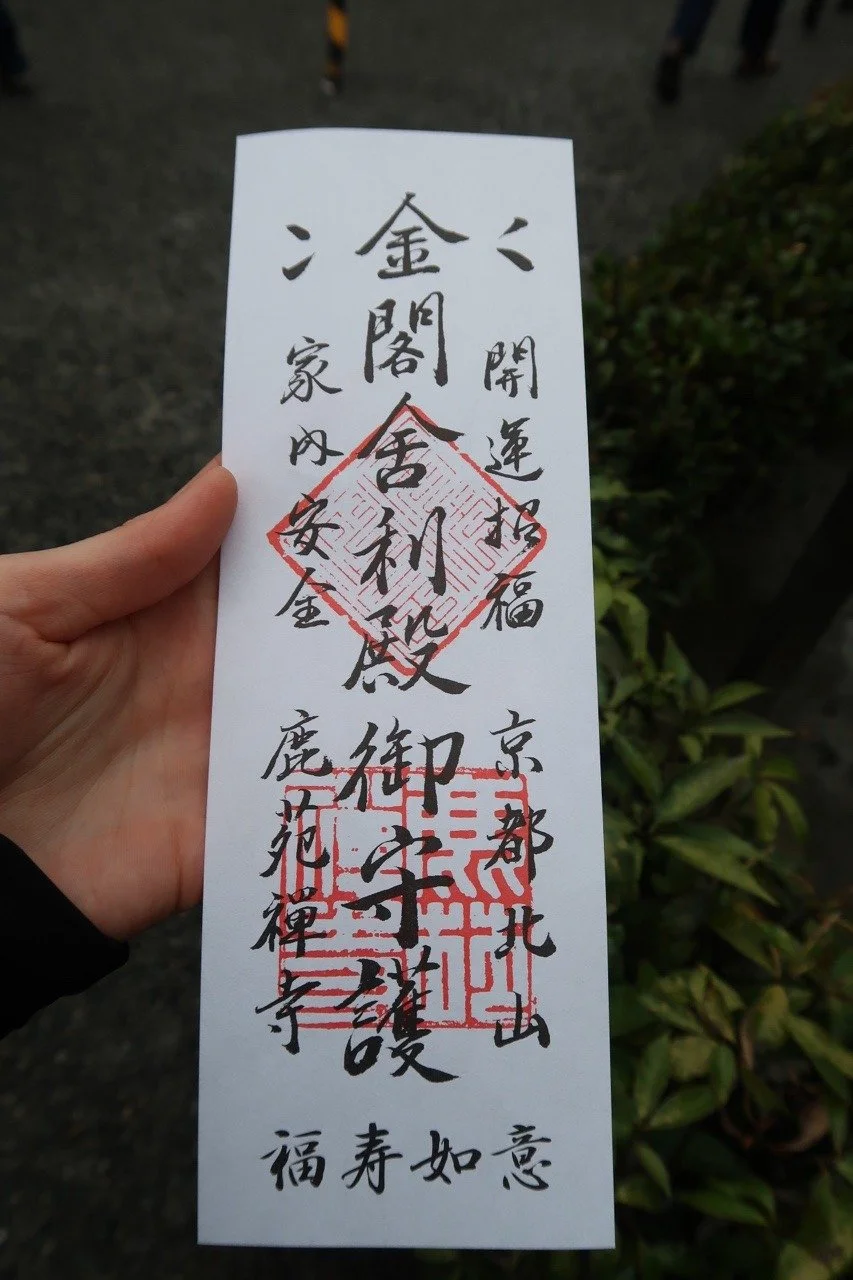 開運招福
京都北山
金閣舎利殿
御守護
家内安全
鹿苑禅寺
如意
福寿